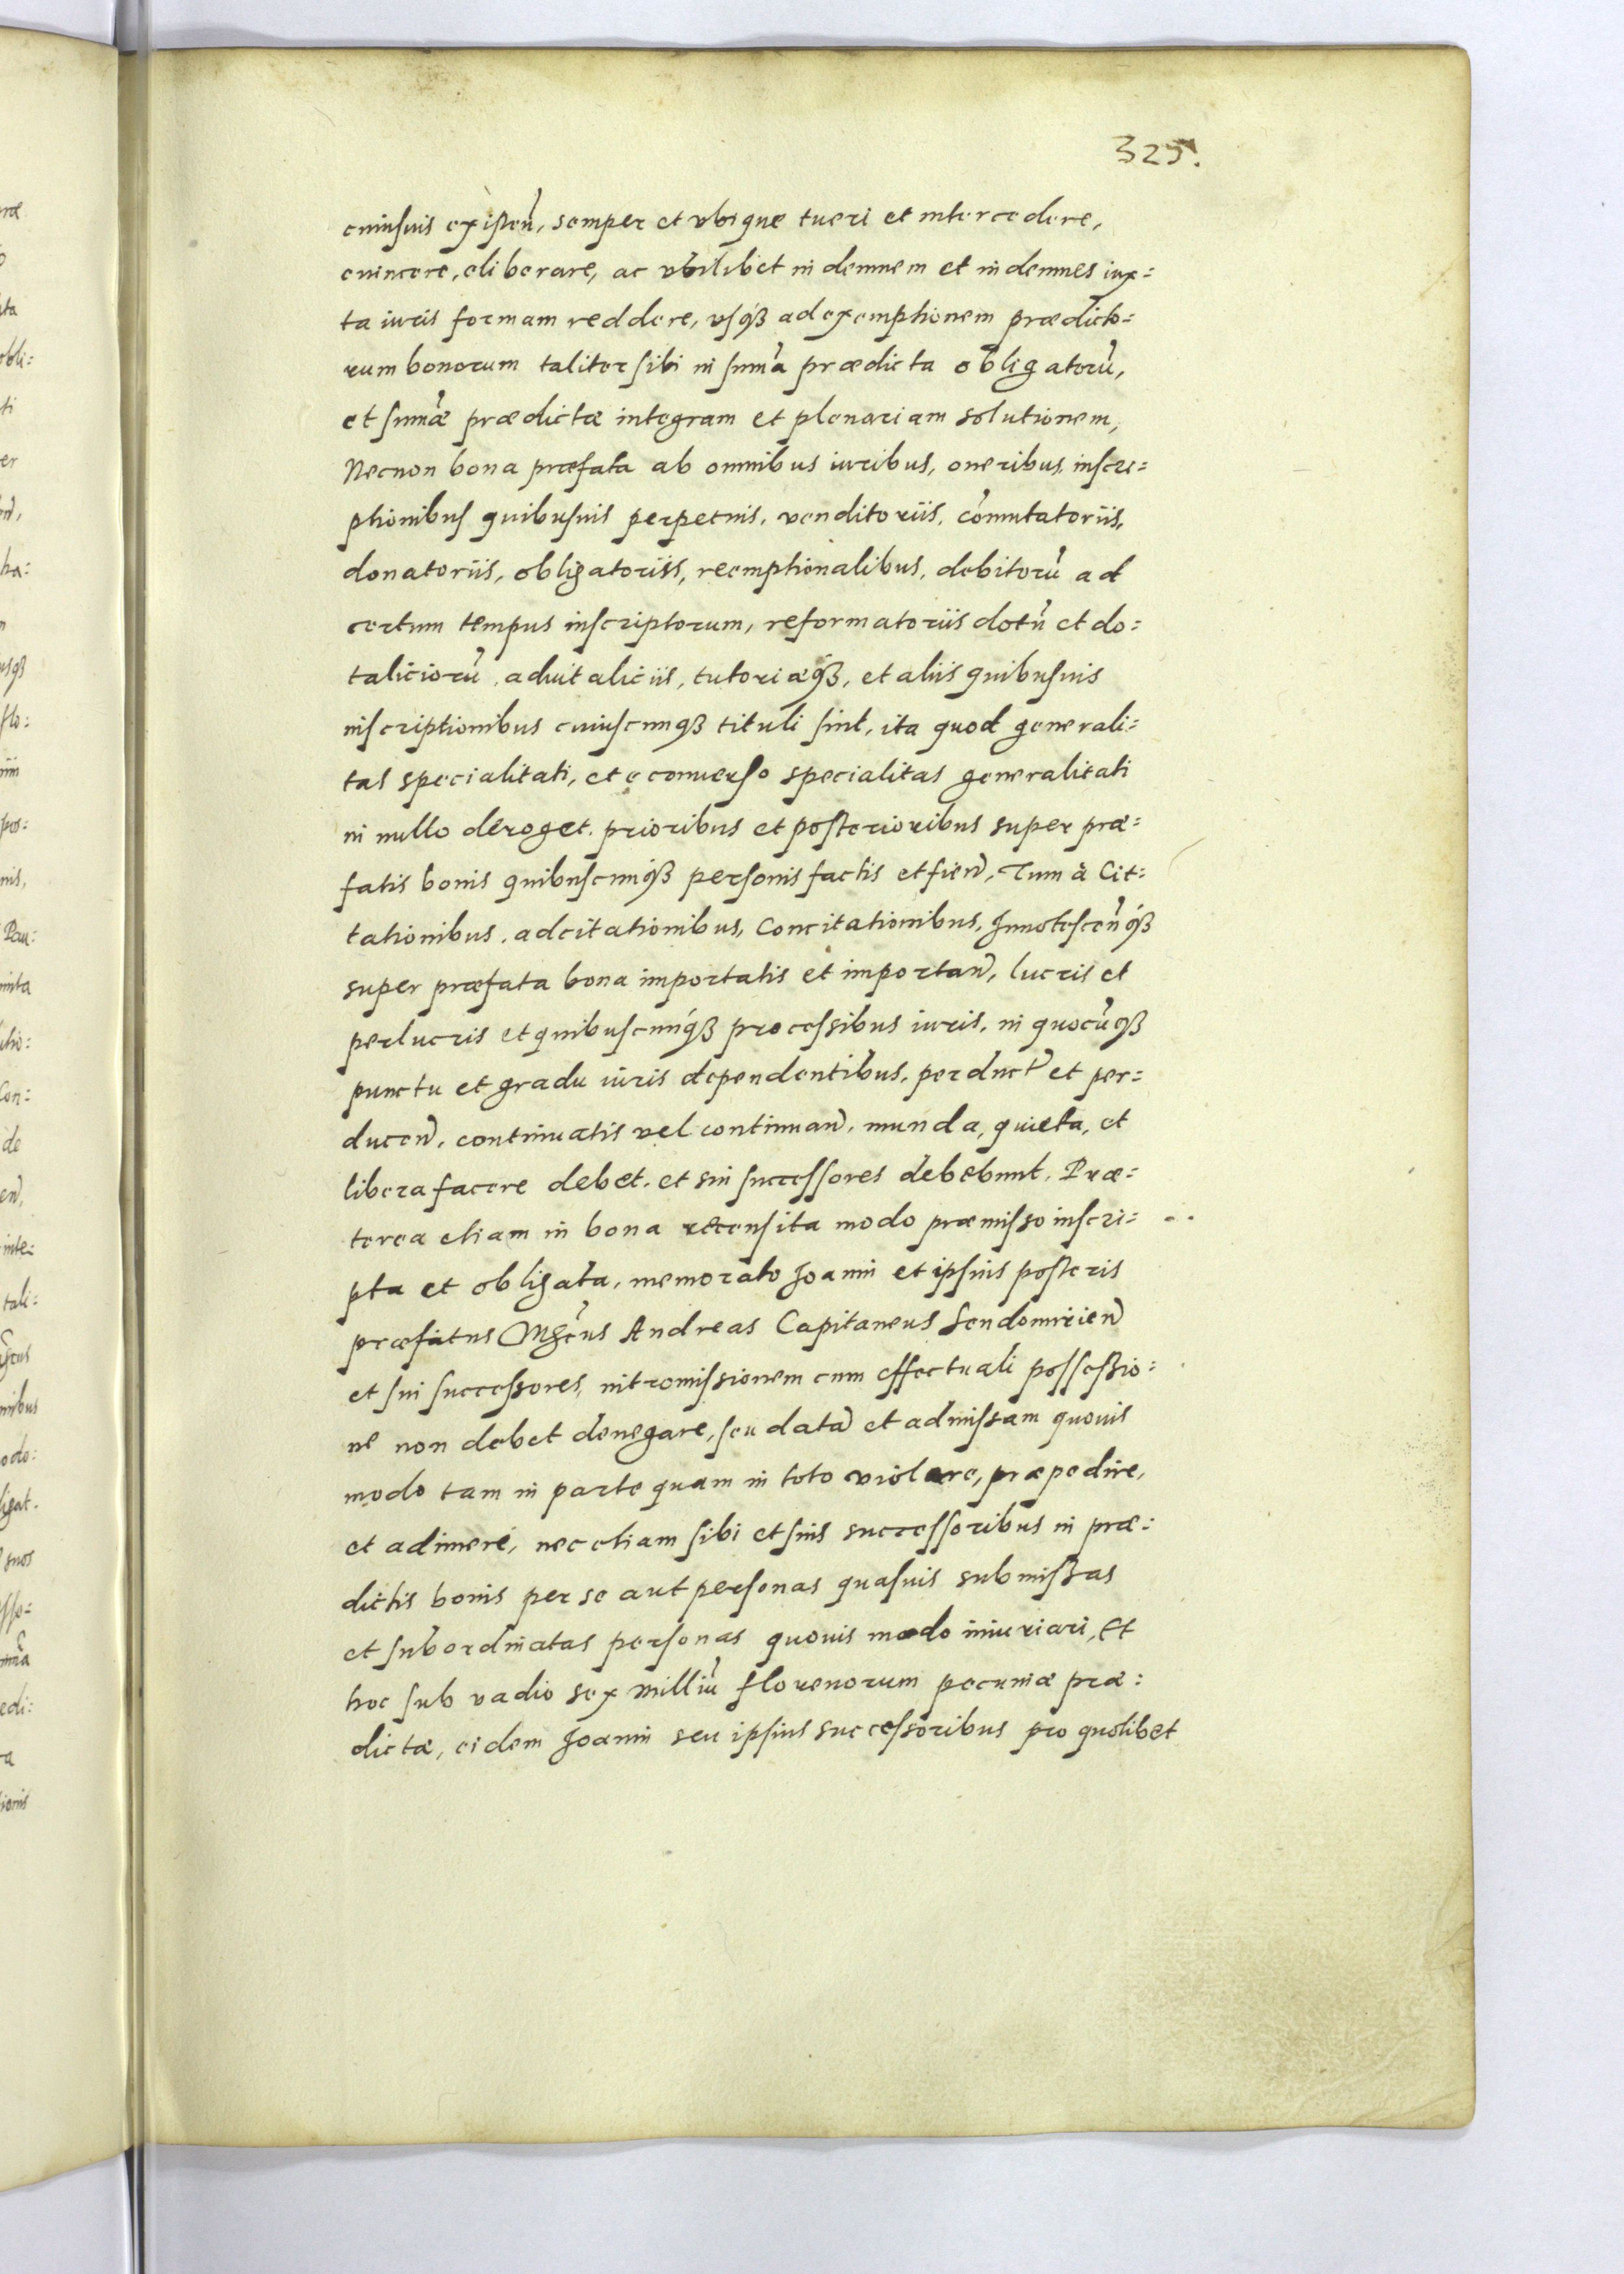 325.
cuiusuis existen̄, semper et vbique tueri et intercedere,
euincere, eliberare, ac vbilibet indemnem et indemnes iux=
ta iuris formam reddere, vsq́ȝ ad exemptionem prædicto=
rum bonorum taliter sibi in sum̄a prædicta obligatorū,
et sum̄æ prædictæ integram et plenariam solutionem,
Necnon bona præfata ab omnibus iuribus, oneribus, inscri=
ptionibus quibusuis perpetuis, venditoriis, com̄utatoriis,
donatoriis, obligatoriis, reemptionalibus, debitorū ad
certum tempus inscriptorum, reformatoriis dotū et do=
taliciorū, aduitaliciis, tutoriæq́ȝ, et aliis quibusuis
inscriptionibus cuiuscunqȝ tituli sint, ita quod generali=
tas specialitati, et e conuerso specialitas generalitati
in nullo deroget, prioribus et posterioribus super præ=
fatis bonis quibuscunq́ȝ personis factis et fien̄, Tum à Cit=
tationibus, adcitationibus, Concitationibus, Innotescen̄q́ȝ
super præfata bona importatis et importan̄, lucris et
perlucris et quibuscunq́ȝ processibus iuris, in quocūqȝ
punctu et gradu iuris dependentibus, perduct̄ et per=
ducen̄, continuatis vel continuan̄, munda, quieta, et
libera facere debet, et sui successores debebunt. Præ=
terea etiam in bona recensita modo præmisso inscri=
pta et obligata, memorato Joanni et ipsius posteris
præfatus Mgcūs Andreas Capitaneus Sendomirien̄
et sui successores, intromissionem cum effectuali possessio=
ne non debet denegare, seu datā et admissam quouis
modo tam in parte quam in toto violare, præpedire,
et adimere, nec etiam sibi et suis successoribus in præ=
dictis bonis per se aut personas quasuis submissas
et subordinatas personas quouis modo iniuriari, Et
hoc sub vadio sex milliū florenorum pecuniæ præ=
dictæ, eidem Joanni seu ipsius successoribus pro quolibet